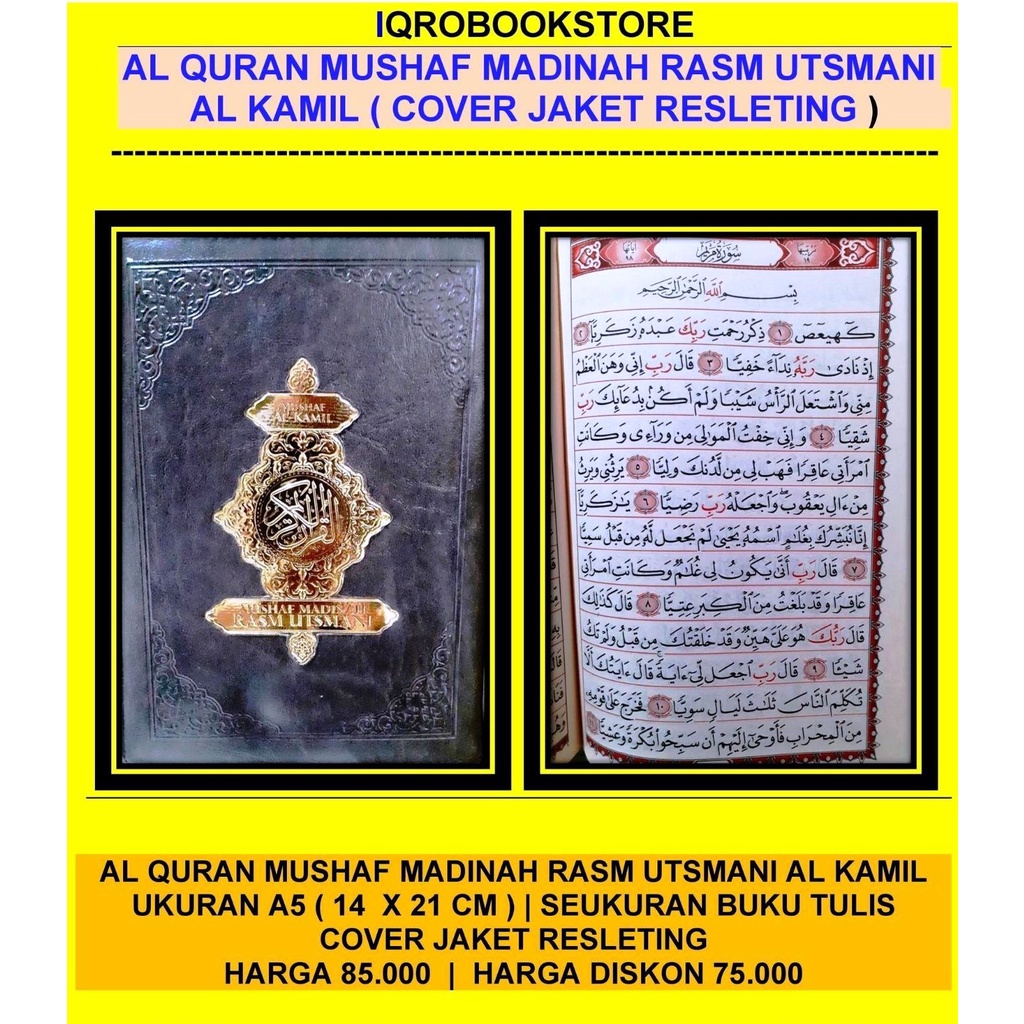 IQROBOOKSTORE
AL QURAN MUSHAF MADINAH RASM UTSMANI
AL KAMIL ( COVER JAKET RESLETING )
MUSHAF
AL-KAMIL
القرآن الكريم
MUSHAF MADINAH
RASM UTSMANI
ترتيبها ١٩ سُورَةُ مَرْيَم آياتها ٩٨
بِسْمِ ٱللَّهِ ٱلرَّحْمَٰنِ ٱلرَّحِيمِ
كٓهيعٓصٓ ١ ذِكْرُ رَحْمَتِ رَبِّكَ عَبْدَهُۥ زَكَرِيَّآ ٢
إِذْ نَادَىٰ رَبَّهُۥ نِدَآءً خَفِيًّا ٣ قَالَ رَبِّ إِنِّى وَهَنَ ٱلْعَظْمُ
مِنِّى وَٱشْتَعَلَ ٱلرَّأْسُ شَيْبًا وَلَمْ أَكُنۢ بِدُعَآئِكَ رَبِّ
شَقِيًّا ٤ وَإِنِّى خِفْتُ ٱلْمَوَٰلِىَ مِن وَرَآءِى وَكَانَتِ
ٱمْرَأَتِى عَاقِرًا فَهَبْ لِى مِن لَّدُنكَ وَلِيًّا ٥ يَرِثُنِى وَيَرِثُ
مِنْ ءَالِ يَعْقُوبَ ۖ وَٱجْعَلْهُ رَبِّ رَضِيًّا ٦ يَٰزَكَرِيَّآ
إِنَّا نُبَشِّرُكَ بِغُلَٰمٍ ٱسْمُهُۥ يَحْيَىٰ لَمْ نَجْعَل لَّهُۥ مِن قَبْلُ سَمِيًّا
٧ قَالَ رَبِّ أَنَّىٰ يَكُونُ لِى غُلَٰمٌ وَكَانَتِ ٱمْرَأَتِى
عَاقِرًا وَقَدْ بَلَغْتُ مِنَ ٱلْكِبَرِ عِتِيًّا ٨ قَالَ كَذَٰلِكَ
قَالَ رَبُّكَ هُوَ عَلَىَّ هَيِّنٌ وَقَدْ خَلَقْتُكَ مِن قَبْلُ وَلَمْ تَكُ
شَيْـًٔا ٩ قَالَ رَبِّ ٱجْعَل لِّىٓ ءَايَةً ۚ قَالَ ءَايَتُكَ أَلَّا
تُكَلِّمَ ٱلنَّاسَ ثَلَٰثَ لَيَالٍ سَوِيًّا ١٠ فَخَرَجَ عَلَىٰ قَوْمِهِۦ
مِنَ ٱلْمِحْرَابِ فَأَوْحَىٰٓ إِلَيْهِمْ أَن سَبِّحُوا۟ بُكْرَةً وَعَشِيًّا
AL QURAN MUSHAF MADINAH RASM UTSMANI AL KAMIL
UKURAN A5 ( 14 X 21 CM ) | SEUKURAN BUKU TULIS
COVER JAKET RESLETING
HARGA 85.000 | HARGA DISKON 75.000